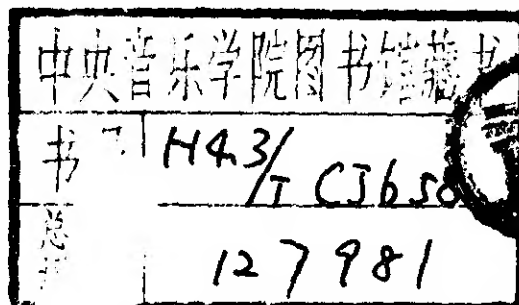 中央音乐学院图书馆藏书
书 H4.3/T CJb50
总 127981